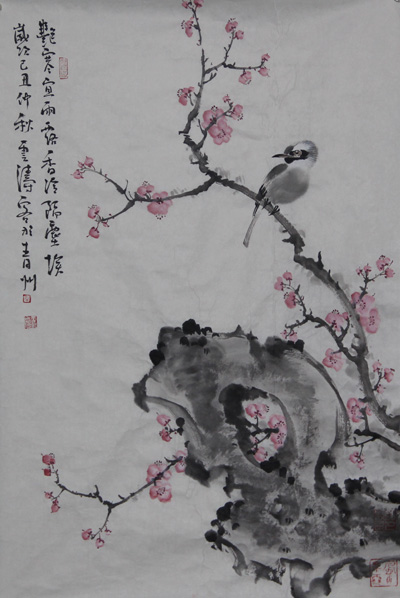 艷寒宜雨露香冷隔塵埃
歲次己丑仲秋雲濤寫於青州